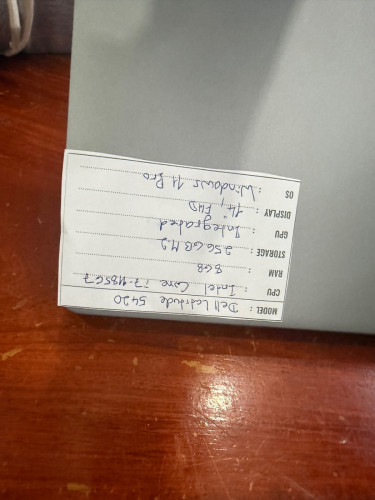 MODEL : Dell Latitude 5420
CPU : Intel Core i7-1185G7
RAM : 8GB
STORAGE : 256GB M.2
GPU : Integrated
DISPLAY : 14", FHD
OS : Windows 11 Pro